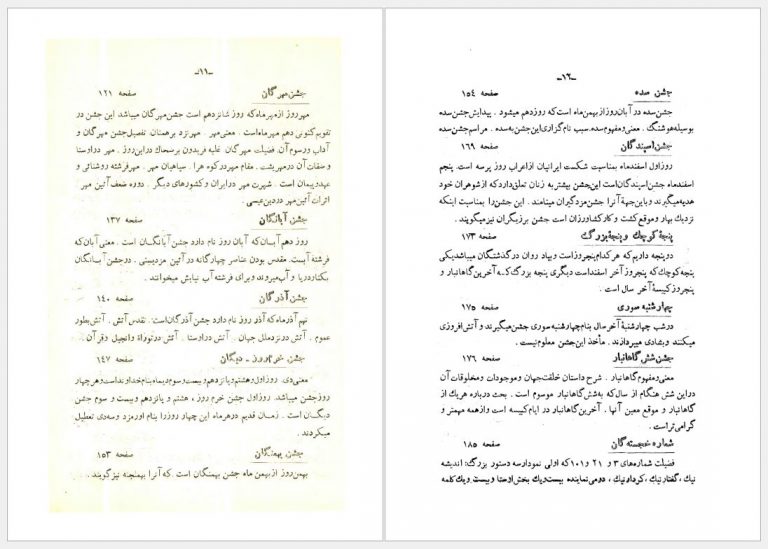 ـ۱۱ـ
جشن مهرگان صفحه ۱۲۱
مهرروز ازمهرماه که روز شانزدهم است جشن مهرگان میباشد این جشن در
تقویم کنونی دهم مهرماه است . معنی مهر . مهر نزد برهمنان تفصیل جشن مهرگان و
آداب ورسوم آن . فضیلت مهرگان غلبه فریدون برضحاک دراین روز . مهر درادستا
و صفات آن درمهریشت . مقام مهر در کوه هرا . سپاهیان مهر . مهر فرشته روشنائی و
عهدوپیمان است . شهرت مهر درایران و کشورهای دیگر . دوره ضعف آئین مهر .
اثرات آئین مهر دردین عیسی .
جشن آبانگان صفحه ۱۳۷
روز دهم آبان که آبان روز نام دارد جشن آبانگان است . معنی آبان که
فرشته آبست. مقدس بودن عناصر چهارگانه در آئین مزدیسنی . درجشن آبانگان
بکنار دریا و آب میروند وبرای فرشته آب نیایش میخوانند .
جشن آذرگان صفحه ۱۴۰
نهم آذرماه که آذر روز نام دارد جشن آذرگان است. تقدس آتش . آتش بطور
عموم . آتش درنزدملل جهان . آتش درادستا . آتش درتوراة وانجیل وقرآن .
جشن خرم‌روز ـ دیگان صفحه ۱۴۷
معنی دی . روز اول وهشتم و پانزدهم وبیست وسوم دیماه بنام خداوند است وهرچهار
روز جشن میباشد. روز اول جشن خرم روز ، هشتم و پانزدهم وبیست و سوم جشن
دیگان است . زمان قدیم درهرماه این چهار روز را بنام اورمزد وسه‌دی تعطیل
میکردند .
جشن بهمنگان صفحه ۱۵۳
بهمن روز از بهمن ماه جشن بهمنگان است که آنرا بهمنجنه نیز گویند .
ـ۱۲ـ
جشن سده صفحه ۱۵۴
جشن سده در آبان روز از بهمن ماه است که روز دهم میشود . پیدایش جشن سده
بوسیله هوشنگ . معنی ومفهوم سده. سبب نام گزاری این جشن به سده . مراسم جشن سده
جشن اسپندگان صفحه ۱۶۹
روز اول اسفندماه بمناسبت شکست ایرانیان از اعراب روز پرسه است. پنجم
اسفندماه جشن اسپندگان است این جشن بیشتر به زنان تعلق دارد که از شوهران خود
هدیه میگیرند و باین جهة آنرا جشن مزدگیران مینامند . این جشن را بمناسبت اینکه
نزدیك بهار وموقع کشت و کار کشاورزان است جشن برزیگران نیز میگویند .
پنجهٔ کوچك و پنجهٔ بزرگ صفحه ۱۷۳
دو پنجه داریم که هر کدام پنج روز است وبیاد روان درگذشتگان میباشد یکی
پنجه کوچك که پنج روز آخر اسفند است دیگری پنجه بزرگ که آخرین گاهانبار و
پنج روز کبیسهٔ آخر سال است .
چهارشنبه سوری صفحه ۱۷۵
درشب چهارشنبهٔ آخر سال بنام چهارشنبه سوری جشن میگیرند و آتش افروزی
میکنند وبشادی میپردازند. مأخذ این جشن معلوم نیست.
جشن شش گاهانبار صفحه ۱۷۶
معنی ومفهوم گاهانبار . شرح داستان خلقت جهان وموجودات ومخلوقات آن
دراین شش هنگام از سال که به شش گاهانبار موسوم است . بحث درباره هریك از
گاهانبار و موقع معین آنها . آخرین گاهانبار درایام کبیسه است وازهمه مهمتر و
گرامی تر است .
شماره خجسته گان صفحه ۱۸۵
فضیلت شماره‌های ۳ و ۲۱ و۱۰۱ که اولی نمودار سه دستور بزرگ: اندیشه
نیك ، گفتار نیك ، کردار نیك ، دومی نماینده بیست ویك بخش اوستا و بیست ویك کلمه